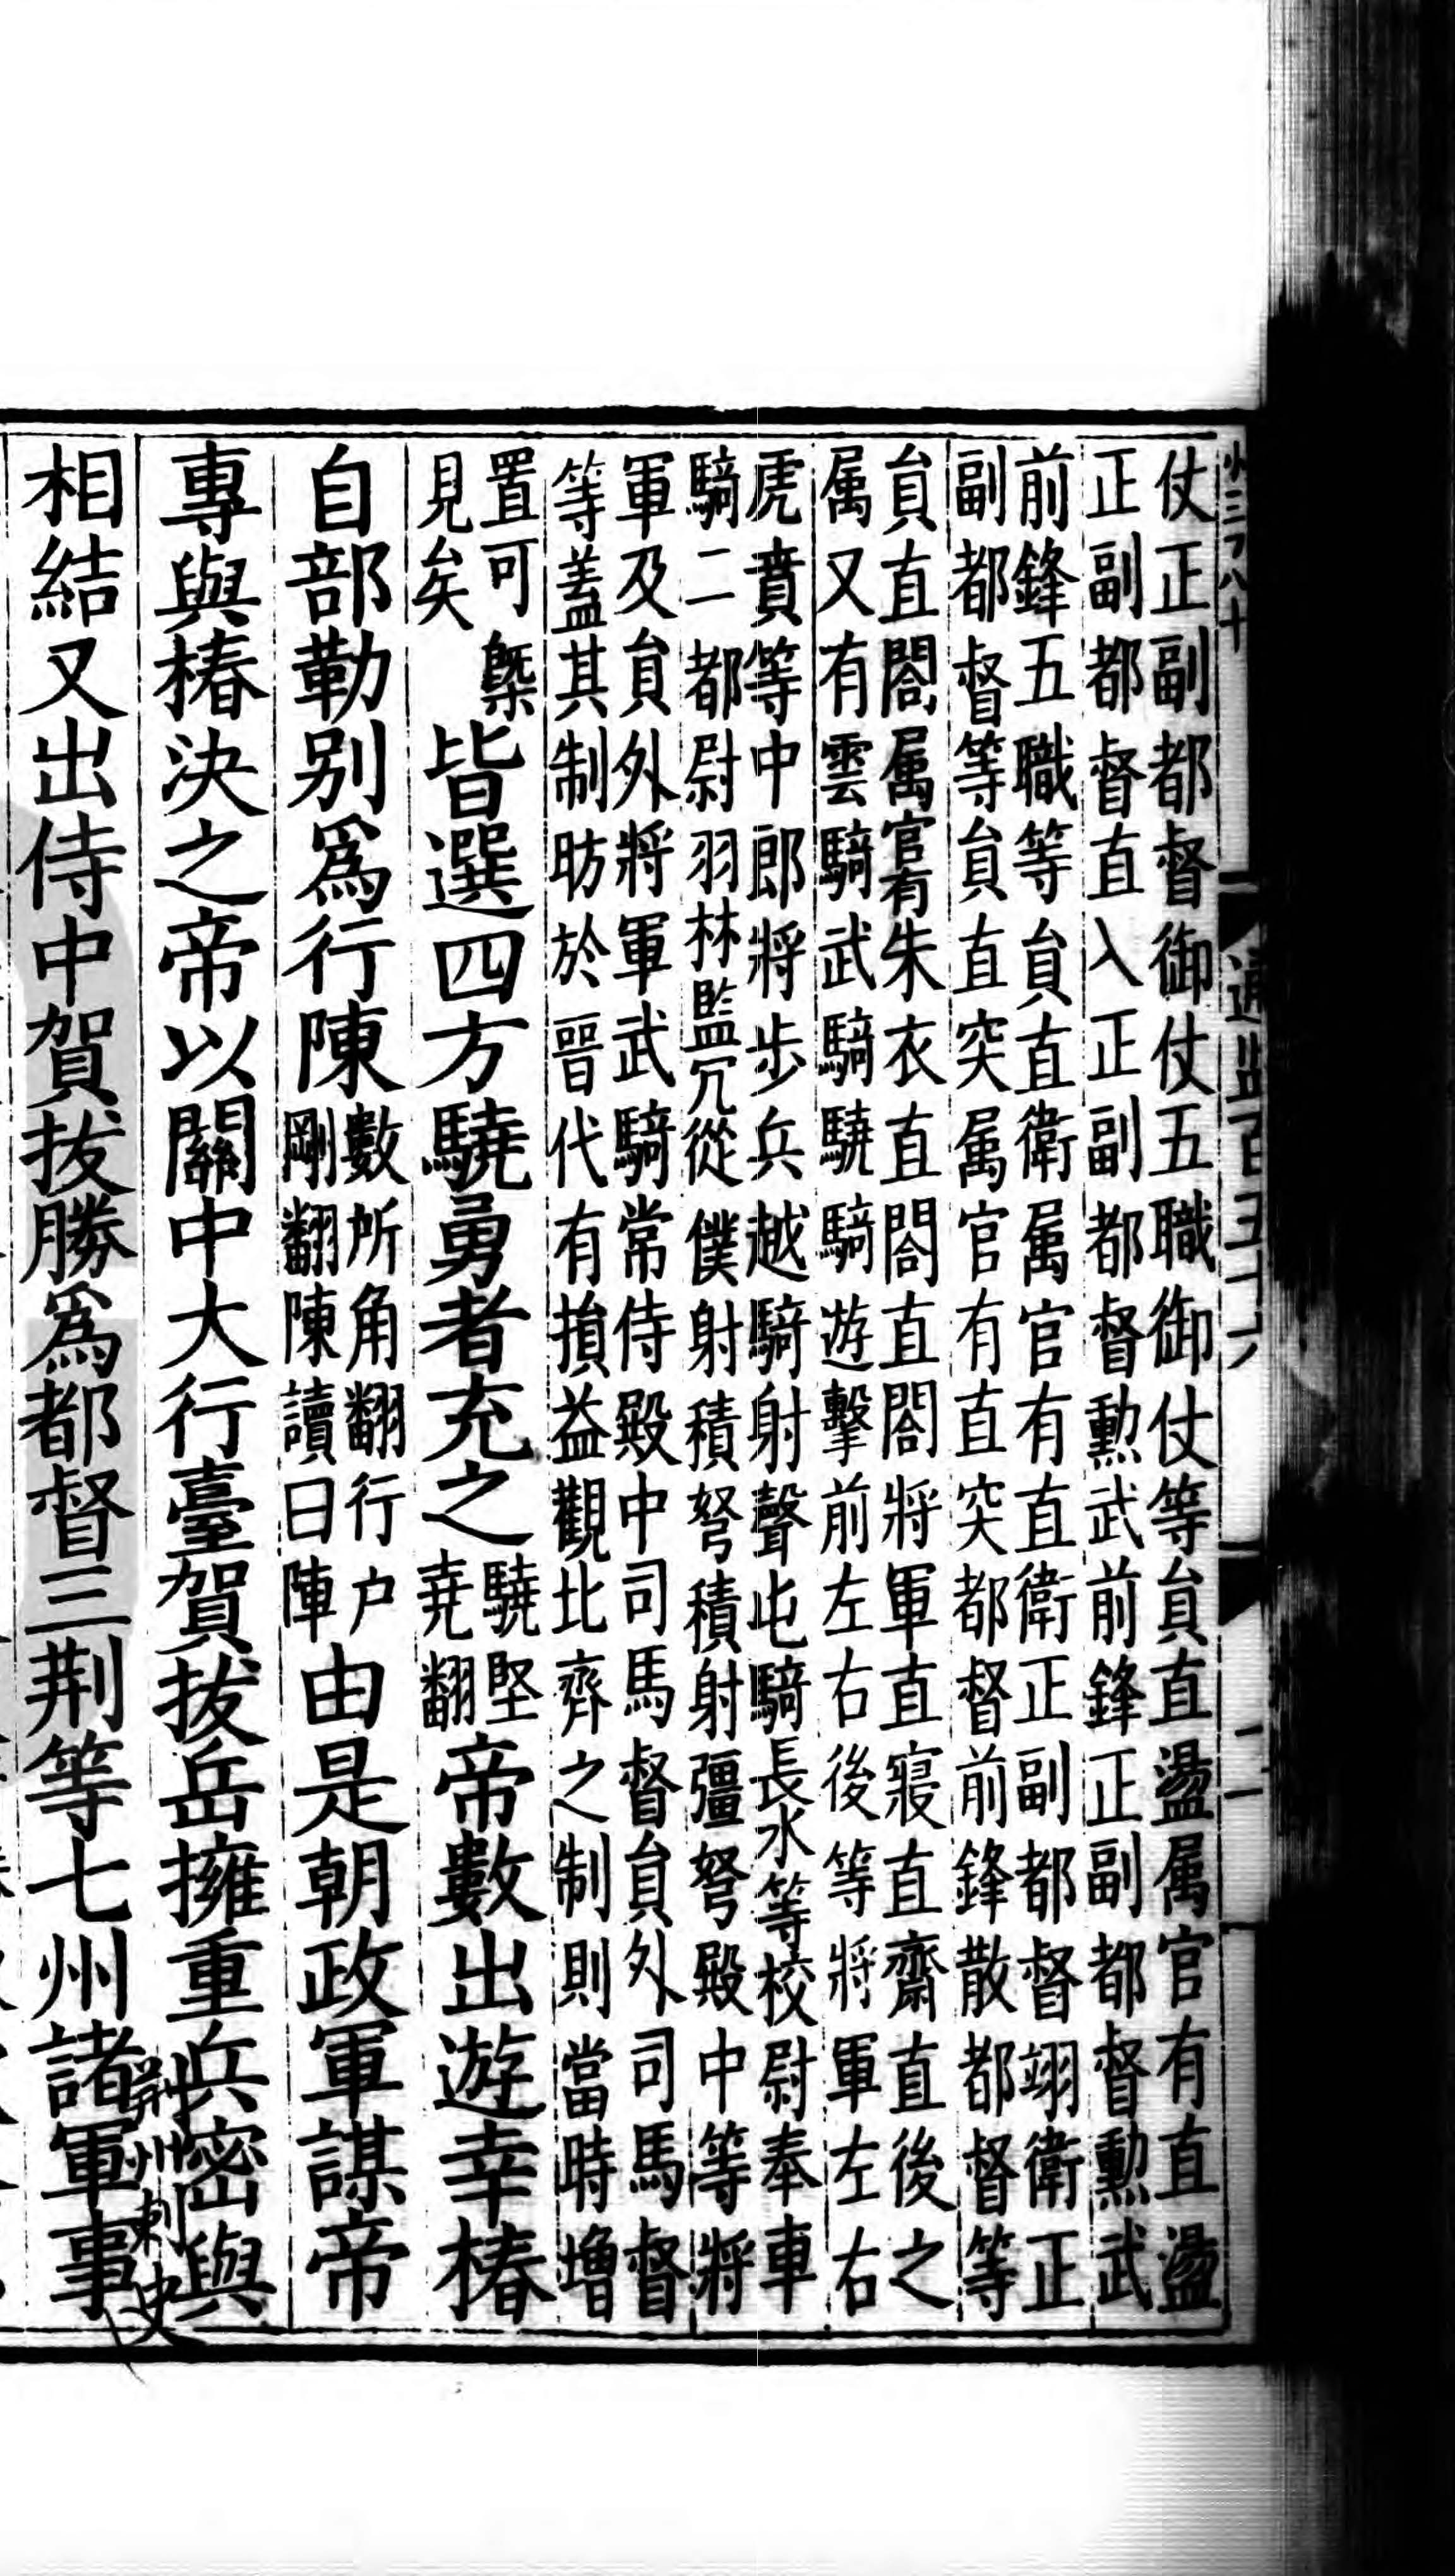 仗正副都督御仗五職御仗等貟直盪属官有直盪
正副都督直入正副都督勲武前鋒正副都督勲武
前鋒五職等貟直衛属官有直衛正副都督翊衛正
副都督等貟直突属官有直突都督前鋒散都督等
貟直閤属官有朱衣直閤直閤將軍直寢直齋直後之
属又有雲騎武騎驍騎遊擊前左右後等將軍左右
虎賁等中郎將步兵越騎射聲屯騎長水等校尉奉車
騎二都尉羽林監冗從僕射積弩積射彊弩殿中等將
軍及貟外將軍武騎常侍殿中司馬督貟外司馬督
等蓋其制昉於晉代有損益觀北齊之制則當時增
置可槩
見矣
皆選四方驍勇者充之
驍堅
尭翻
帝數出遊幸椿
自部勒别爲行陳
數所角翻行户
剛翻陳讀曰陣
由是朝政軍謀帝
專與椿決之帝以關中大行臺賀拔岳擁重兵密與
相結又出侍中賀拔勝爲都督三荆等七州諸軍事
荆州刺史